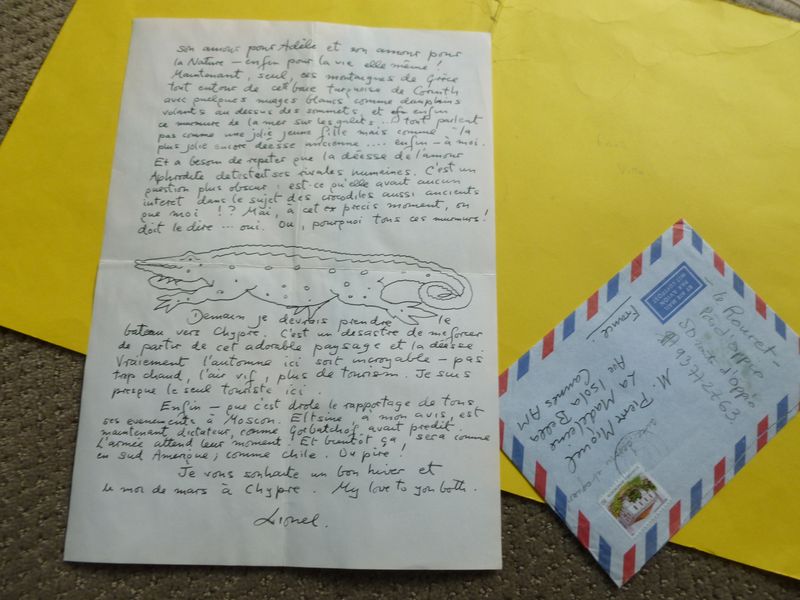 son amour pour Adèle et son amour pour
la Nature — enfin pour la vie elle même!
Maintenant, seul, ces montagnes de Grèce
tout entour de cette baie turquoise de Corinth
avec quelques nuages blancs comme dauphins
volants au dessus des sommets, et enfin
ce murmure de la mer sur les galets... tout parlent
pas comme une jolie jeune fille mais comme à la
plus jolie encore déesse ancienne .... enfin — à moi.
Et a besoin de repeter que la déesse de l'amour
Aphrodite detestait ses rivales humaines. C'est un
question plus obscur: est-ce qu'elle avait aucun
interet dans le sujet des crocodiles aussi ancients
que moi!? Mai, à cet precis moment, on
doit le dire ... oui. Ou, pourquoi tous ces murmurs!
Demain je devrais prendre le
bateau vers Chypre. C'est un desastre de me forcer
de partir de cet adorable paysage et la déesse.
Vraiement l'automne ici soit incroyable — pas
trop chaud, l'air vif, plus de tourism. Je suis
presque le seul touriste ici.
Enfin — que c'est drole le rapportage de tous
ses evenements à Moscou. Eltsine, a mon avis, est
maintenant dictateur, comme Gorbatchov avait predit.
L'armée attend leur moment! Et bientôt ça, sera comme
en sud Amerique; comme Chile. Ou pire.
Je vous souhaite un bon hiver et
le moi de mars à Chypre. My love to you both.
Lionel.
BY AIR MAIL
PAR AVION
le Rouret —
par Oppio
93772763
M. Pierre Mionel
La Madeleine
Isola Bella
Ave
Cannes AM
France.